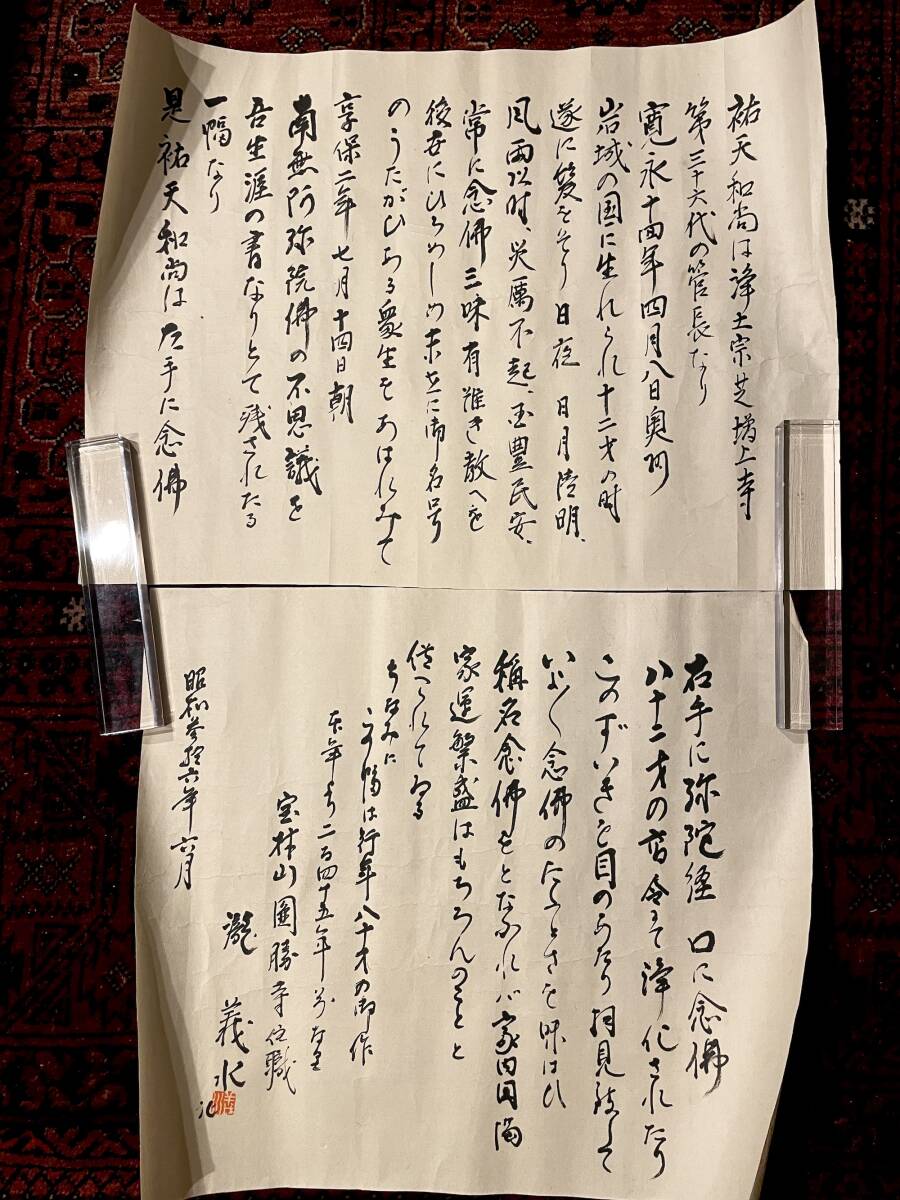 祐天和尚は浄土宗芝増上寺
第三十六代の管長なり
寛永十四年四月八日奥州
岩城の国に生れられ十二才の時
遂に髪をそり日夜 日月清明、
風雨以時、災厲不起、国豊民安、
常に念佛三昧有難き教へを
後世にひろめしめ末世に御名号
のうたがひある衆生をあはれみて
享保二年七月十四日朝
南無阿弥陀佛の不思議を
吾生涯の書なりとて残されたる
一幅なり
是祐天和尚は左手に念佛
右手に弥陀経 口に念佛
八十二才の高令で浄化されたり
このずいきを目のあたり拝見致して
いよ〱念佛のたふとさを味はひ
稱名念佛をとなふれば家内円満
家運繁盛はもちろんのこと
借へられてゐる
ちなみに
この幅は行年八十才の御作
本年より二百四十五年前なり
宝林山圓勝寺住職
瀧 義水
記
昭和参拾六年六月